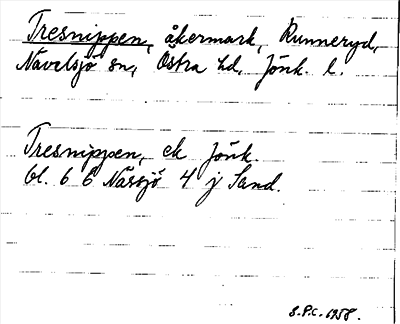 Tresnippen, åkermark, Runneryd,
Nävelsjö sn, Östra hd, Jönk. l.
Tresnippen, ek Jönk.
bl. 6 6 Nässjö 4 j Sand.
S.P.C. 1958.